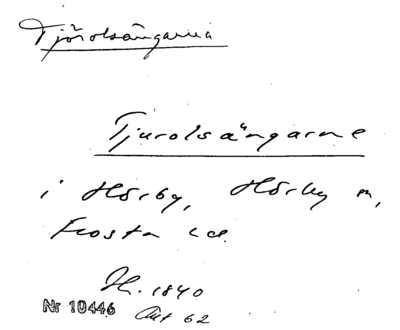 Tjörolsängarna
Tjurolsängarne
i Hörby, Hörby sn,
Frosta hd.
H. 1840
Akt 62
Nr 10446